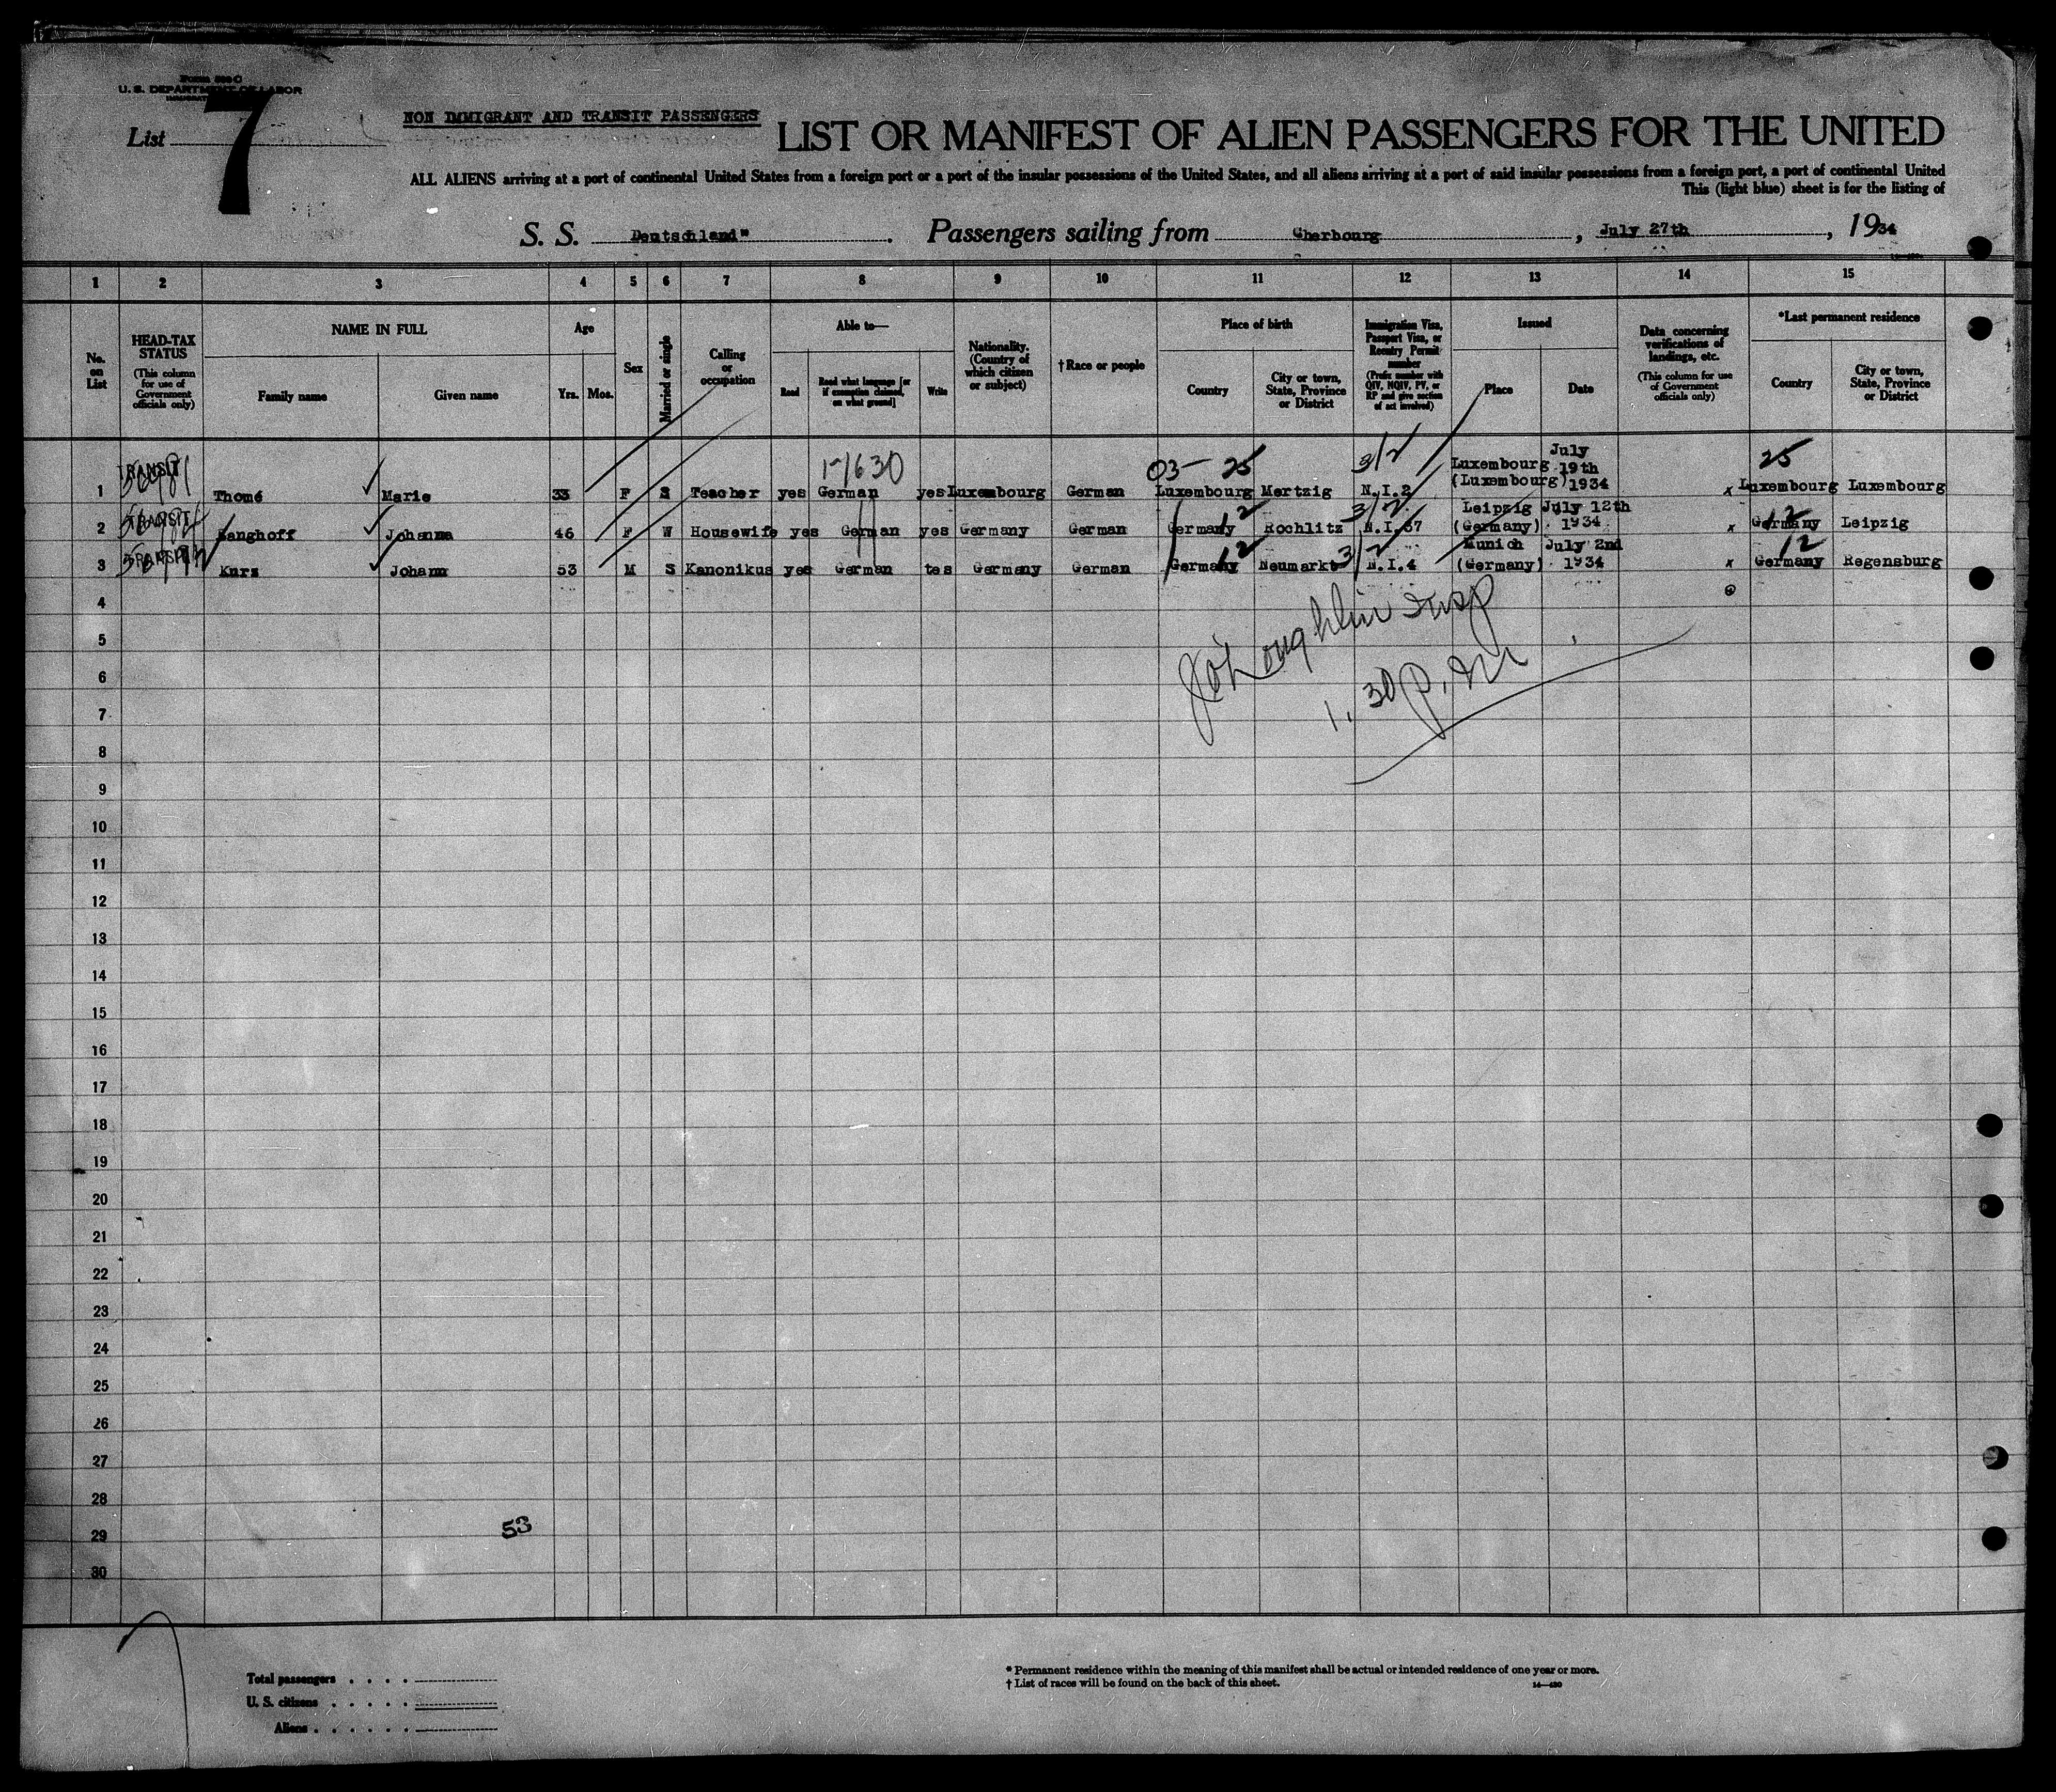 Form 500 C
U. S. DEPARTMENT OF LABOR
List 7
NON IMMIGRANT AND TRANSIT PASSENGERS
LIST OR MANIFEST OF ALIEN PASSENGERS FOR THE UNITED
ALL ALIENS arriving at a port of continental United States from a foreign port or a port of the insular possessions of the United States, and all aliens arriving at a port of said insular possessions from a foreign port, a port of continental United
This (light blue) sheet is for the listing of
S. S. Deutschland" . Passengers sailing from Cherbourg , July 27th , 1934
1 2 3 4 5 6 7 8 9 10 11 12 13 14 15
No. on List
HEAD-TAX STATUS (This column for use of Government officials only)
NAME IN FULL Family name Given name
Age Yrs. Mos.
Sex
Married or single
Calling or occupation
Able to— Read Read what language [or if exemption claimed, on what ground] Write
Nationality. (Country of which citizen or subject)
†Race or people
Place of birth Country City or town, State, Province or District
Immigration Visa, Passport Visa, or Reentry Permit number (Prefix number with QIV, NQIV, PV, or RP and give section of act involved)
Issued Place Date
Data concerning verifications of landings, etc. (This column for use of Government officials only)
*Last permanent residence Country City or town, State, Province or District
1-1630 03- 25 3/2 25
1 TRANSIT Thomé Marie 33 F S Teacher yes German yes Luxembourg German Luxembourg Mertzig N.I.2 Luxembourg (Luxembourg) July 19th 1934 x Luxembourg Luxembourg
12 3/2 12
2 TRANSIT Sanghoff Johanna 46 F W Housewife yes German yes Germany German Germany Rochlitz N.I.67 Leipzig (Germany) July 12th 1934 x Germany Leipzig
12 3/2 12
3 TRANSIT Kurz Johann 53 M S Kanonikus yes German tes Germany German Germany Neumarkt N.I.4 Munich (Germany) July 2nd 1934 x Germany Regensburg
4
5
6
7
8
9
10
11
12
13
14
15
16
17
18
19
20
21
22
23
24
25
26
27
28
29
30
J O'Loughlin Insp
1.30 P.M
53
Total passengers . . . .
U. S. citizens . . . . .
Aliens . . . . . .
* Permanent residence within the meaning of this manifest shall be actual or intended residence of one year or more.
† List of races will be found on the back of this sheet.
14—420